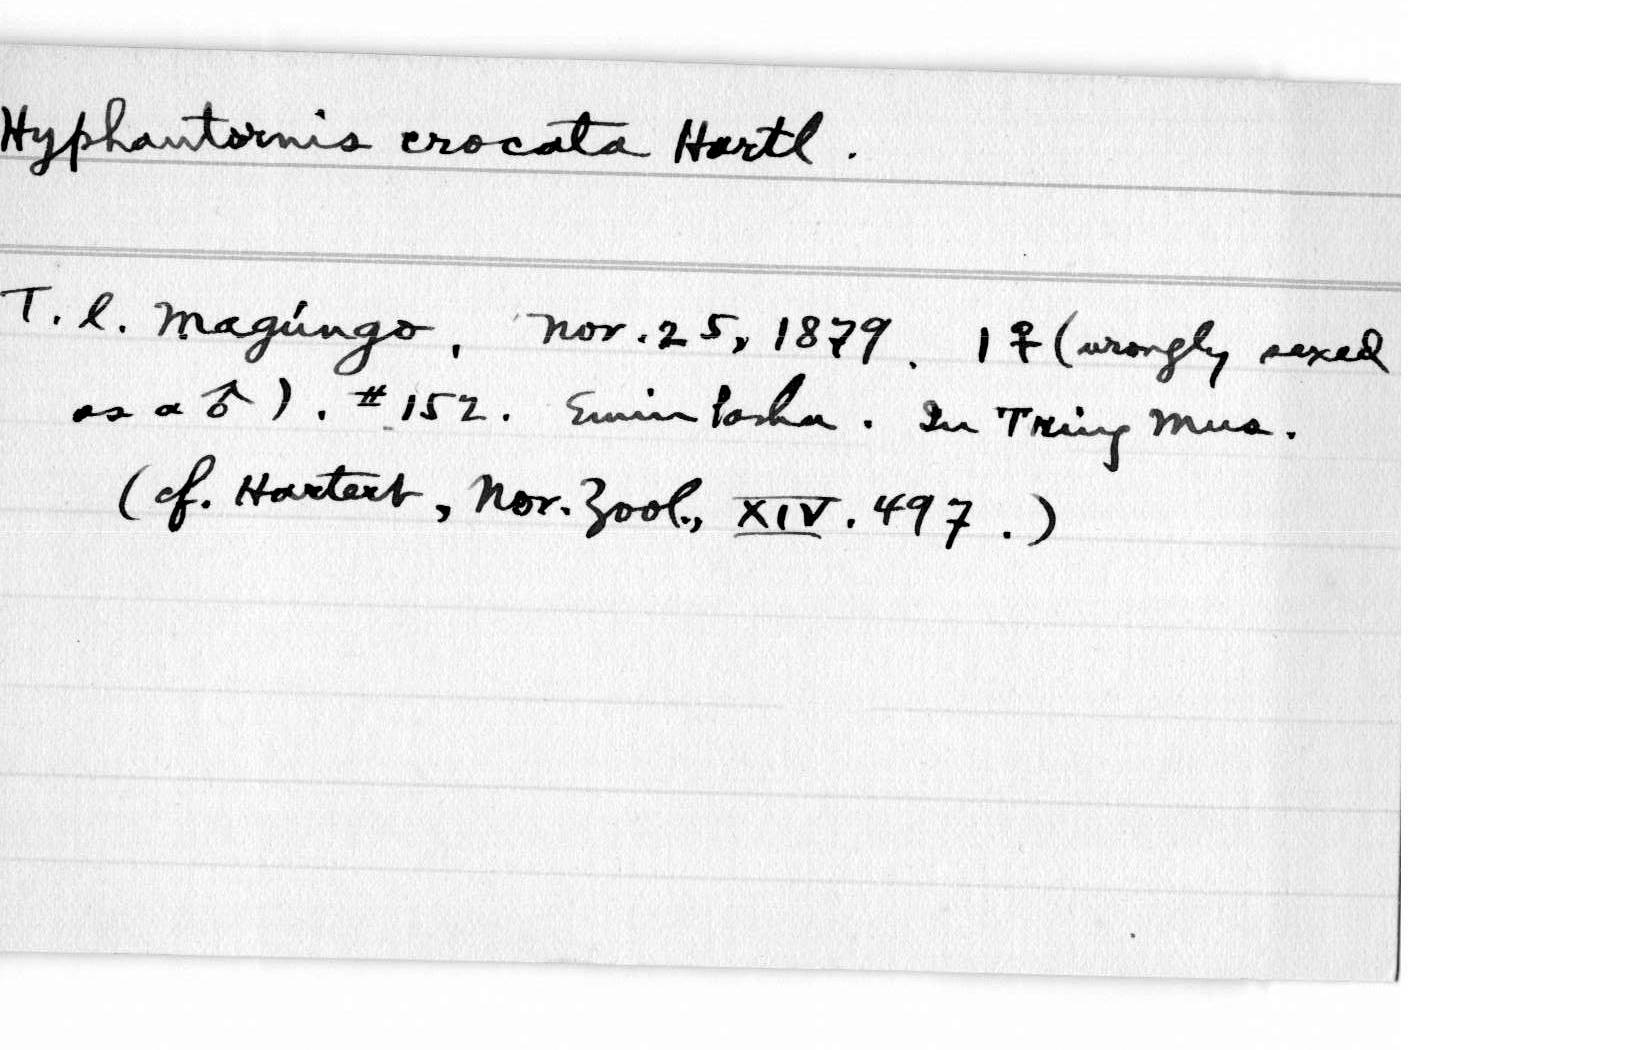 Hyphantornis crocata Hartl.
T. l. Magúngo, Nov. 25, 1879. 1 ♀ (wrongly sexed
as a ♂). # 152. Emin Pasha. In Tring Mus.
(cf. Hartert, Nov. Zool., XIV. 497.)